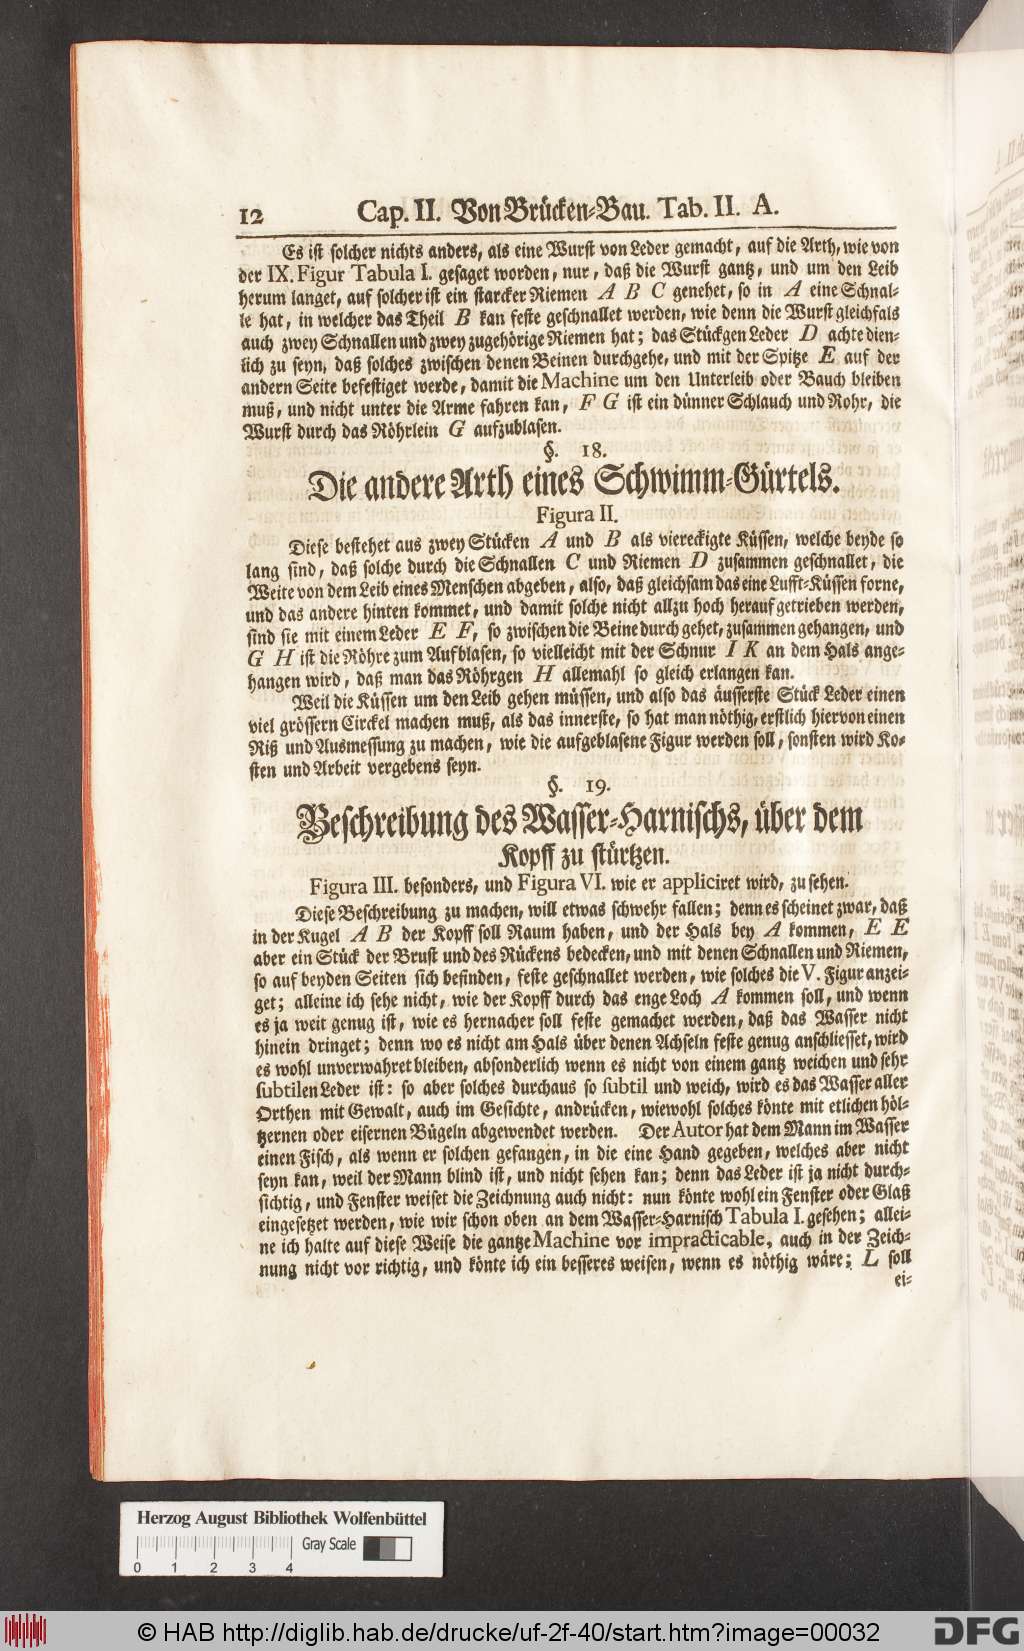 12 Cap. II. Von Brücken-Bau. Tab. II. A.
Es ist solcher nichts anders, als eine Wurst von Leder gemacht, auf die Arth, wie von
der IX. Figur Tabula I. gesaget worden, nur, daß die Wurst gantz, und um den Leib
herum langet, auf solcher ist ein starcker Riemen A B C genehet, so in A eine Schnal-
le hat, in welcher das Theil B kan feste geschnallet werden, wie denn die Wurst gleichfals
auch zwey Schnallen und zwey zugehörige Riemen hat; das Stückgen Leder D achte dien-
lich zu seyn, daß solches zwischen denen Beinen durchgehe, und mit der Spitze E auf der
andern Seite befestiget werde, damit die Machine um den Unterleib oder Bauch bleiben
muß, und nicht unter die Arme fahren kan, F G ist ein dünner Schlauch und Rohr, die
Wurst durch das Röhrlein G aufzublasen.
§. 18.
Die andere Arth eines Schwimm-Gürtels.
Figura II.
Diese bestehet aus zwey Stücken A und B als viereckigte Küssen, welche beyde so
lang sind, daß solche durch die Schnallen C und Riemen D zusammen geschnallet, die
Weite von dem Leib eines Menschen abgeben, also, daß gleichsam das eine Lufft-Küssen forne,
und das andere hinten kommet, und damit solche nicht allzu hoch herauf getrieben werden,
sind sie mit einem Leder E F, so zwischen die Beine durch gehet, zusammen gehangen, und
G H ist die Röhre zum Aufblasen, so vielleicht mit der Schnur I K an dem Hals ange-
hangen wird, daß man das Röhrgen H allemahl so gleich erlangen kan.
Weil die Küssen um den Leib gehen müssen, und also das äusserste Stück Leder einen
viel grössern Circkel machen muß, als das innerste, so hat man nöthig, erstlich hiervon einen
Riß und Ausmessung zu machen, wie die aufgeblasene Figur werden soll, sonsten wird Ko-
sten und Arbeit vergebens seyn.
§. 19.
Beschreibung des Wasser-Harnischs, über dem
Kopff zu stürtzen.
Figura III. besonders, und Figura VI. wie er appliciret wird, zu sehen.
Diese Beschreibung zu machen, will etwas schwehr fallen; denn es scheinet zwar, daß
in der Kugel A B der Kopff soll Raum haben, und der Hals bey A kommen, E E
aber ein Stück der Brust und des Rückens bedecken, und mit denen Schnallen und Riemen,
so auf beyden Seiten sich befinden, feste geschnallet werden, wie solches die V. Figur anzei-
get; alleine ich sehe nicht, wie der Kopff durch das enge Loch A kommen soll, und wenn
es ja weit genug ist, wie es hernacher soll feste gemachet werden, daß das Wasser nicht
hinein dringet; denn wo es nicht am Hals über denen Achseln feste genug anschliesset, wird
es wohl unverwahret bleiben, absonderlich wenn es nicht von einem gantz weichen und sehr
subtilen Leder ist: so aber solches durchaus so subtil und weich, wird es das Wasser aller
Orthen mit Gewalt, auch im Gesichte, andrücken, wiewohl solches könte mit etlichen höl-
tzernen oder eisernen Bügeln abgewendet werden. Der Autor hat dem Mann im Wasser
einen Fisch, als wenn er solchen gefangen, in die eine Hand gegeben, welches aber nicht
seyn kan, weil der Mann blind ist, und nicht sehen kan; denn das Leder ist ja nicht durch-
sichtig, und Fenster weiset die Zeichnung auch nicht: nun könte wohl ein Fenster oder Glaß
eingesetzet werden, wie wir schon oben an dem Wasser-Harnisch Tabula I. gesehen; allei-
ne ich halte auf diese Weise die gantze Machine vor impracticable, auch in der Zeich-
nung nicht vor richtig, und könte ich ein besseres weisen, wenn es nöthig wäre; L soll
ei-
Herzog August Bibliothek Wolfenbüttel
Gray Scale
0 1 2 3 4
© HAB http://diglib.hab.de/drucke/uf-2f-40/start.htm?image=00032
DFG